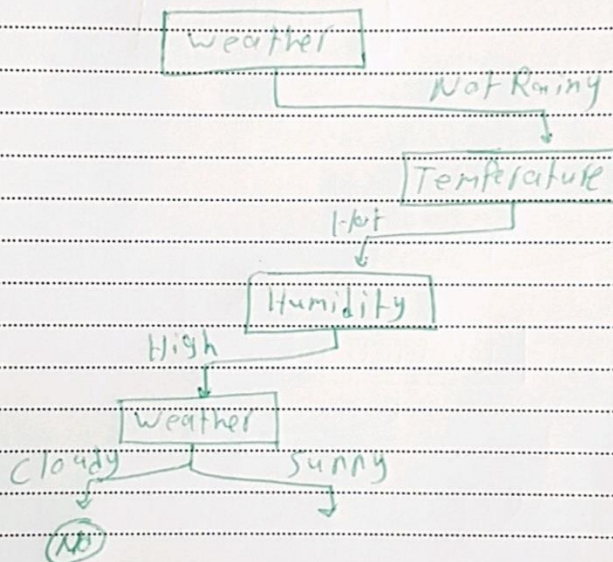 Weather
Not Rainy
Temperature
Hot
Humidity
High
Weather
Cloudy Sunny
No